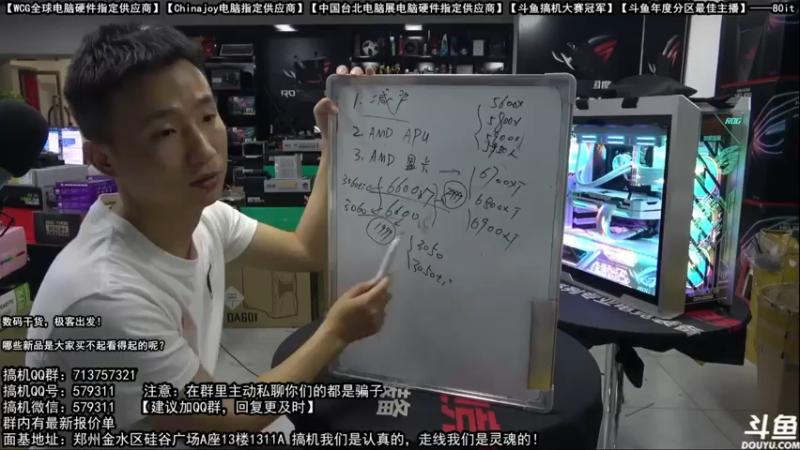 【WCG全球电脑硬件指定供应商】【Chinajoy电脑指定供应商】【中国台北电脑展电脑硬件指定供应商】【斗鱼搞机大赛冠军】【斗鱼年度分区最佳主播】——80it
1. 减产
2. AMD APU
3. AMD 显卡
5600X
5800X
5900X
5950X
6700XT
6800XT
6900XT
6600XT
6600
3060
1999
3050
ROG
DA601
数码干货，极客出发！
哪些新品是大家买不起看得起的呢？
搞机QQ群：713757321
搞机QQ号：579311 注意：在群里主动私聊你们的都是骗子
搞机微信：579311 【建议加QQ群，回复更及时】
群内有最新报价单
面基地址：郑州金水区硅谷广场A座13楼1311A 搞机我们是认真的，走线我们是灵魂的！
斗鱼
DOUYU.COM